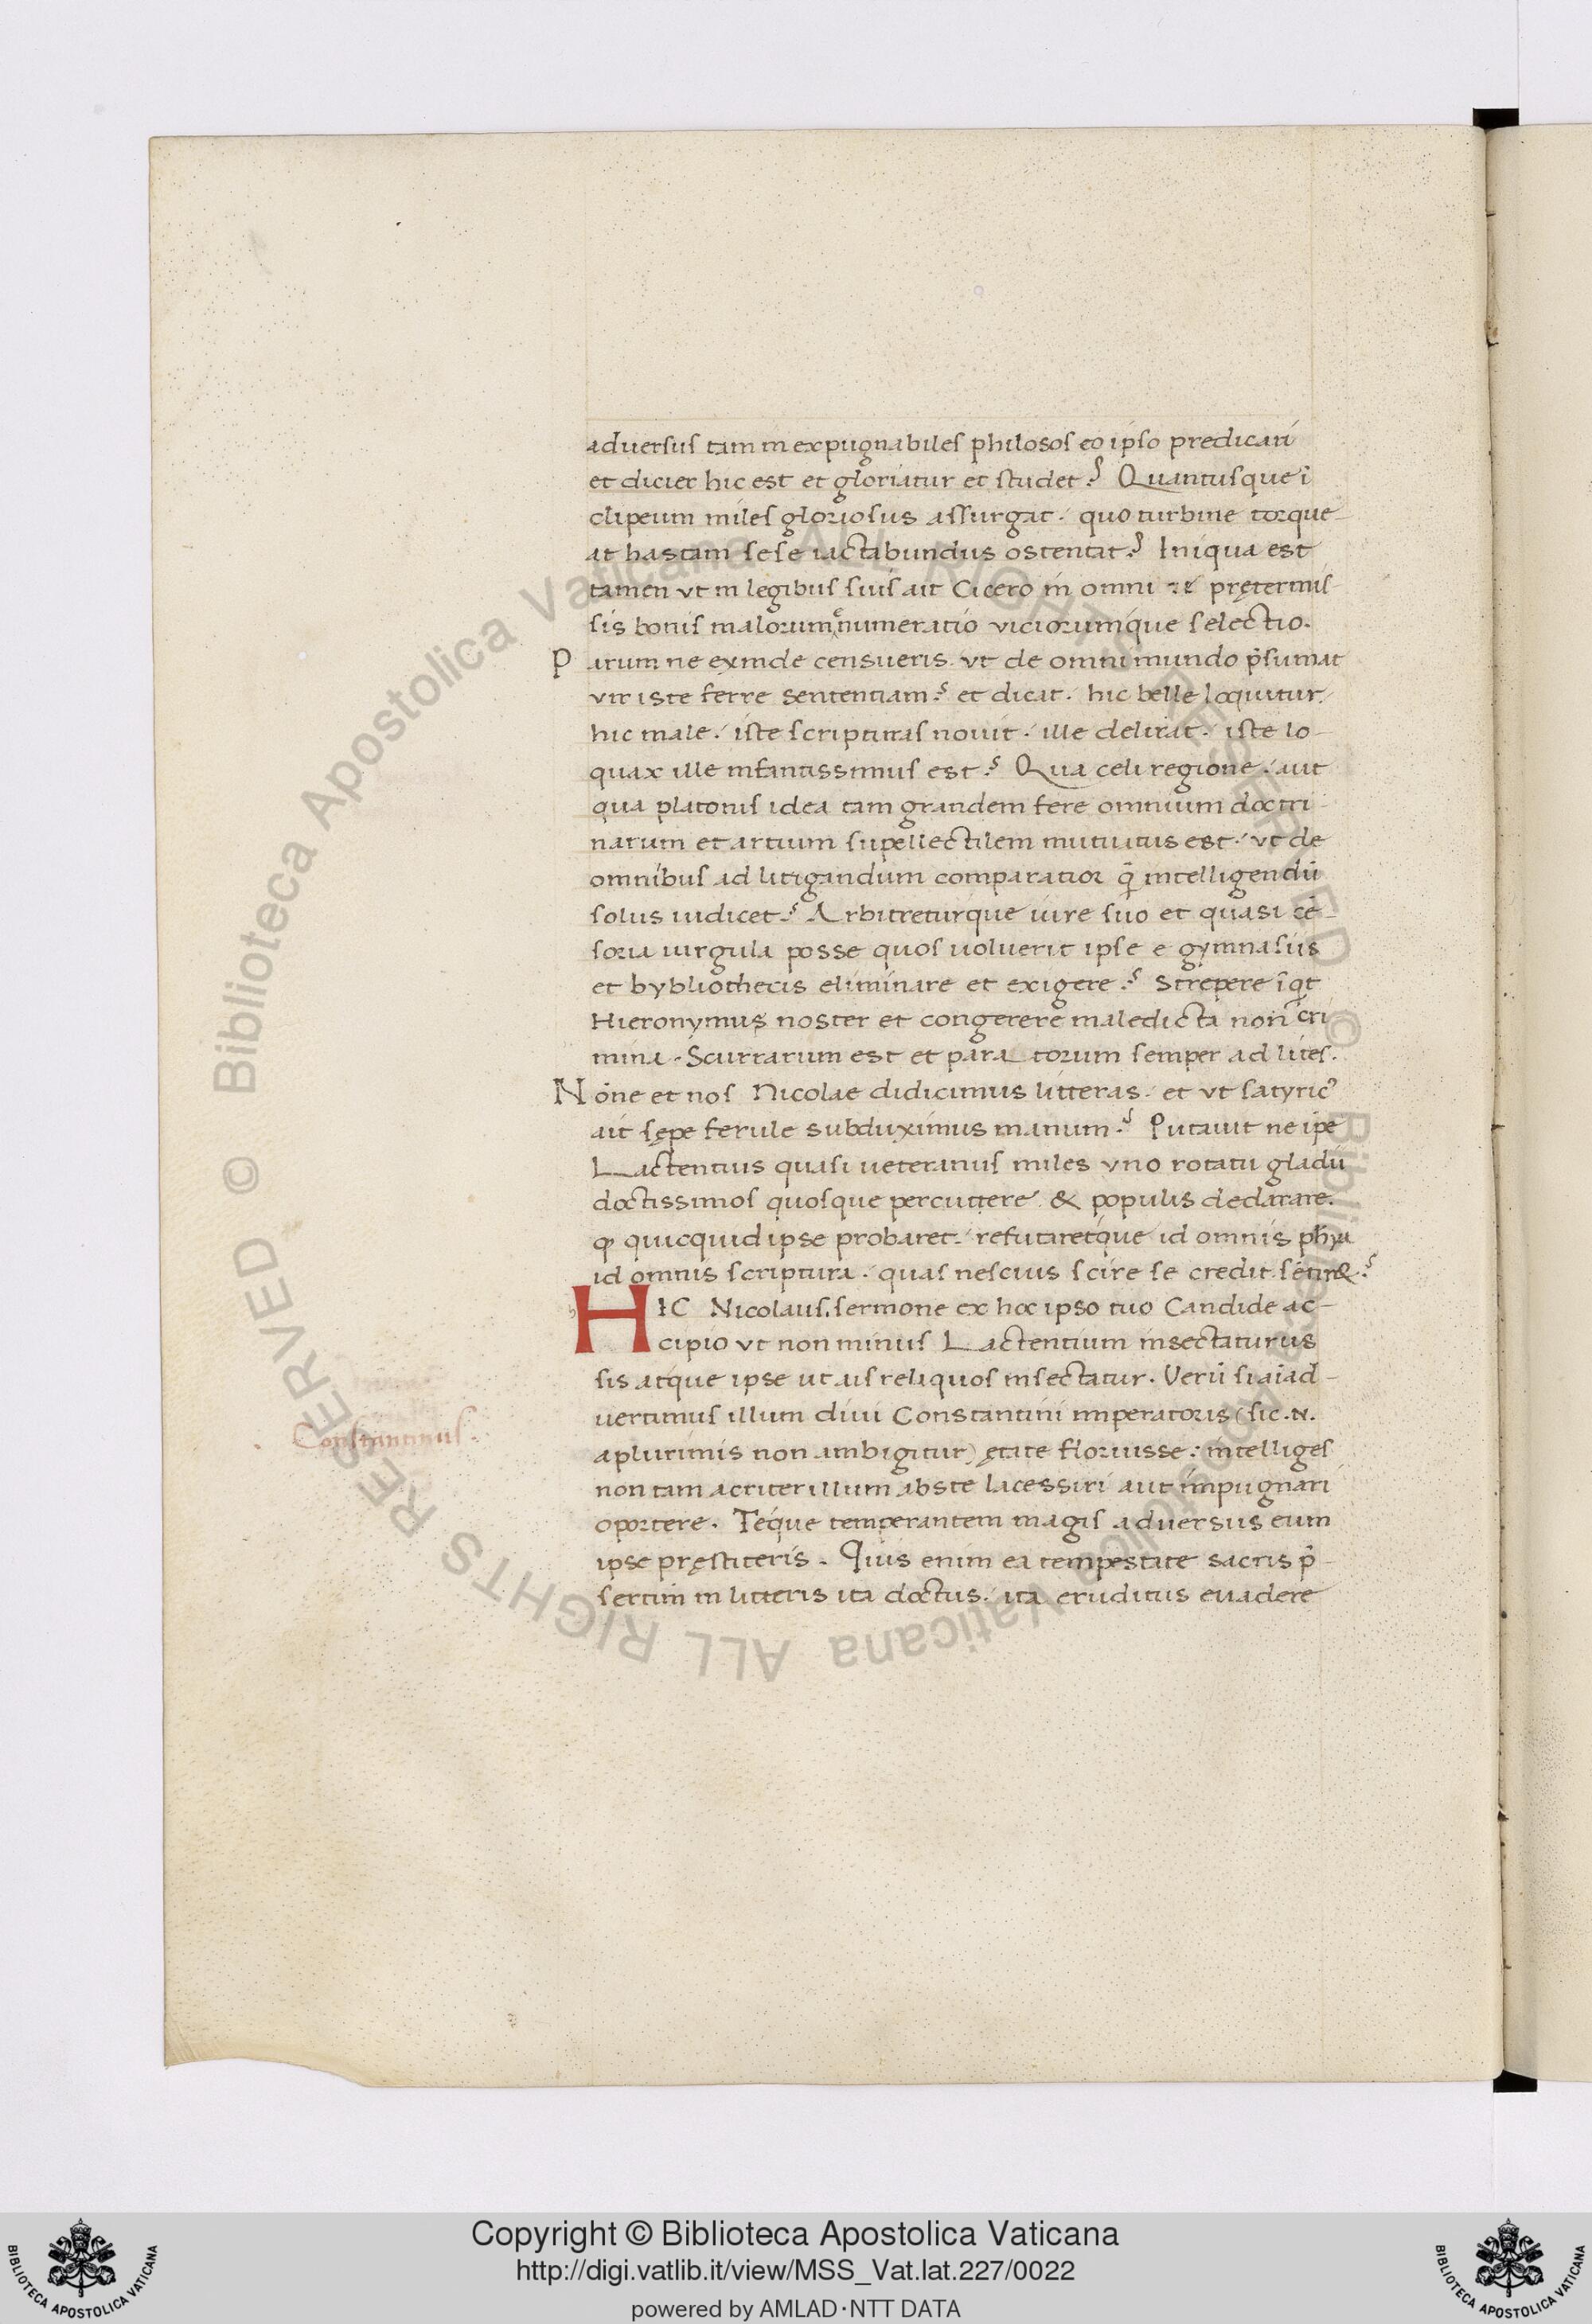 adversus tam inexpugnabiles philosos eo ipso predicari
et dicier hic est et gloriatur et studet? Quantusque ī
clipeum miles gloriosus assurgat. quo turbine torque-
at hastam sese iactabundus ostentat? Iniqua est
tamen vt in legibus suis ait Cicero in omni re prętermis-
sis bonis malorum enumeratio viciorumque selectio.
Parum ne exinde censueris. vt de omni mundo p̄sumat
vir iste ferre sententiam? et dicat. hic belle loquitur/
hic male. iste scripturas novit. ille delirat. iste lo-
quax ille infantissimus est? Qua celi regione. aut
qua platonis idea tam grandem fere omnium doctri-
narum et artium supellectilem mutuitus est. vt de
omnibus ad litigandum comparatior q̄ intelligendū
solus iudicet? Arbitreturque iure suo et quasi cē-
soria uirgula posse quos uoluerit ipse e gymnasiis
et bybliothecis eliminare et exigere? Strepere īqt
Hieronymus noster et congerere maledicta non cri-
mina. Scurrarum est et para torum semper ad lites.
Nōne et nos Nicolae didicimus litteras. et vt satyric9
ait sępe ferule subduximus manum? Putauit ne ip̄e
Lactentius quasi ueteranus miles vno rotatu gladii
doctissimos quosque percuttere & populis declarare.
ꝙ quicquid ipse probaret. refutaretque id omnis phya
id omnis scriptura. quas nescius scire se credit sētir&?
HIC Nicolaus. sermone ex hoc ipso tuo Candide ac-
cipio vt non minus Lactentium insectaturus
sis atque ipse ut ais reliquos insectatur. Verū si aīad-
uertimus illum diui Constantini imperatoris (sic .n.
a plurimis non ambigitur) ętate floruisse: intelliges
non tam acriter illum abs te lacessiri aut impugnari
oportere. Teque temperantem magis aduersus eum
ipse pręstiteris. Quis enim ea tempestate sacris p̄-
sertim in litteris ita doctus. ita eruditus euadere
Constantinus.
Copyright © Biblioteca Apostolica Vaticana
http://digi.vatlib.it/view/MSS_Vat.lat.227/0022
powered by AMLAD·NTT DATA
BIBLIOTECA APOSTOLICA VATICANA
BIBLIOTECA APOSTOLICA VATICANA
© Biblioteca Apostolica Vaticana ALL RIGHTS RESERVED
© Biblioteca Apostolica Vaticana ALL RIGHTS RESERVED